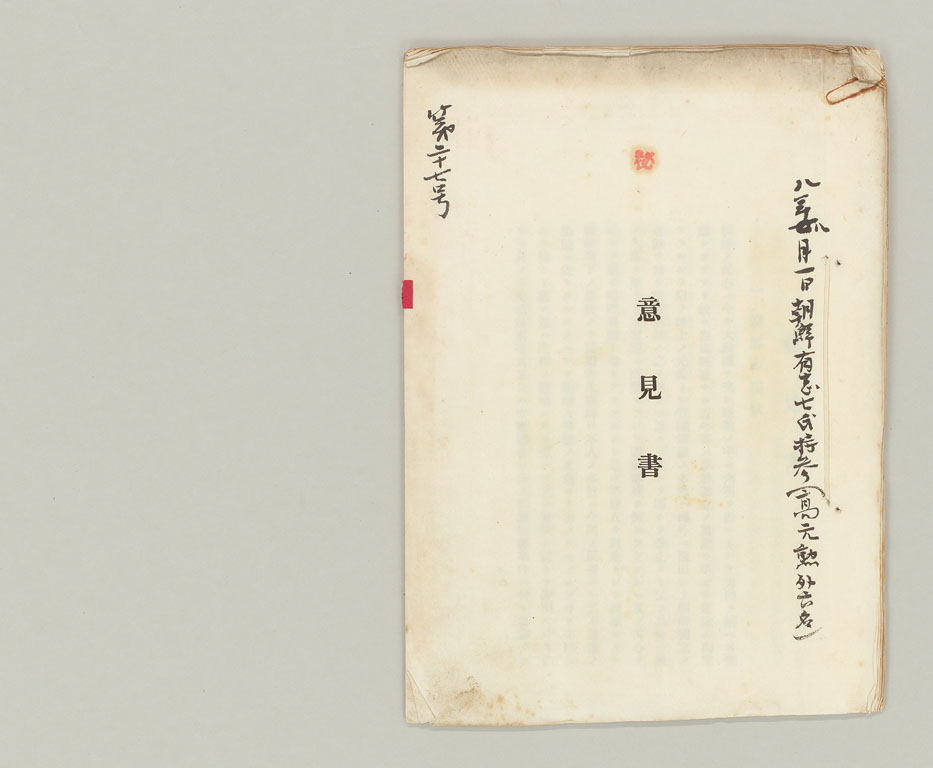 八年八月一日朝鮮有志七氏持参(高元勲外六名)
秘
意見書
第二十七号